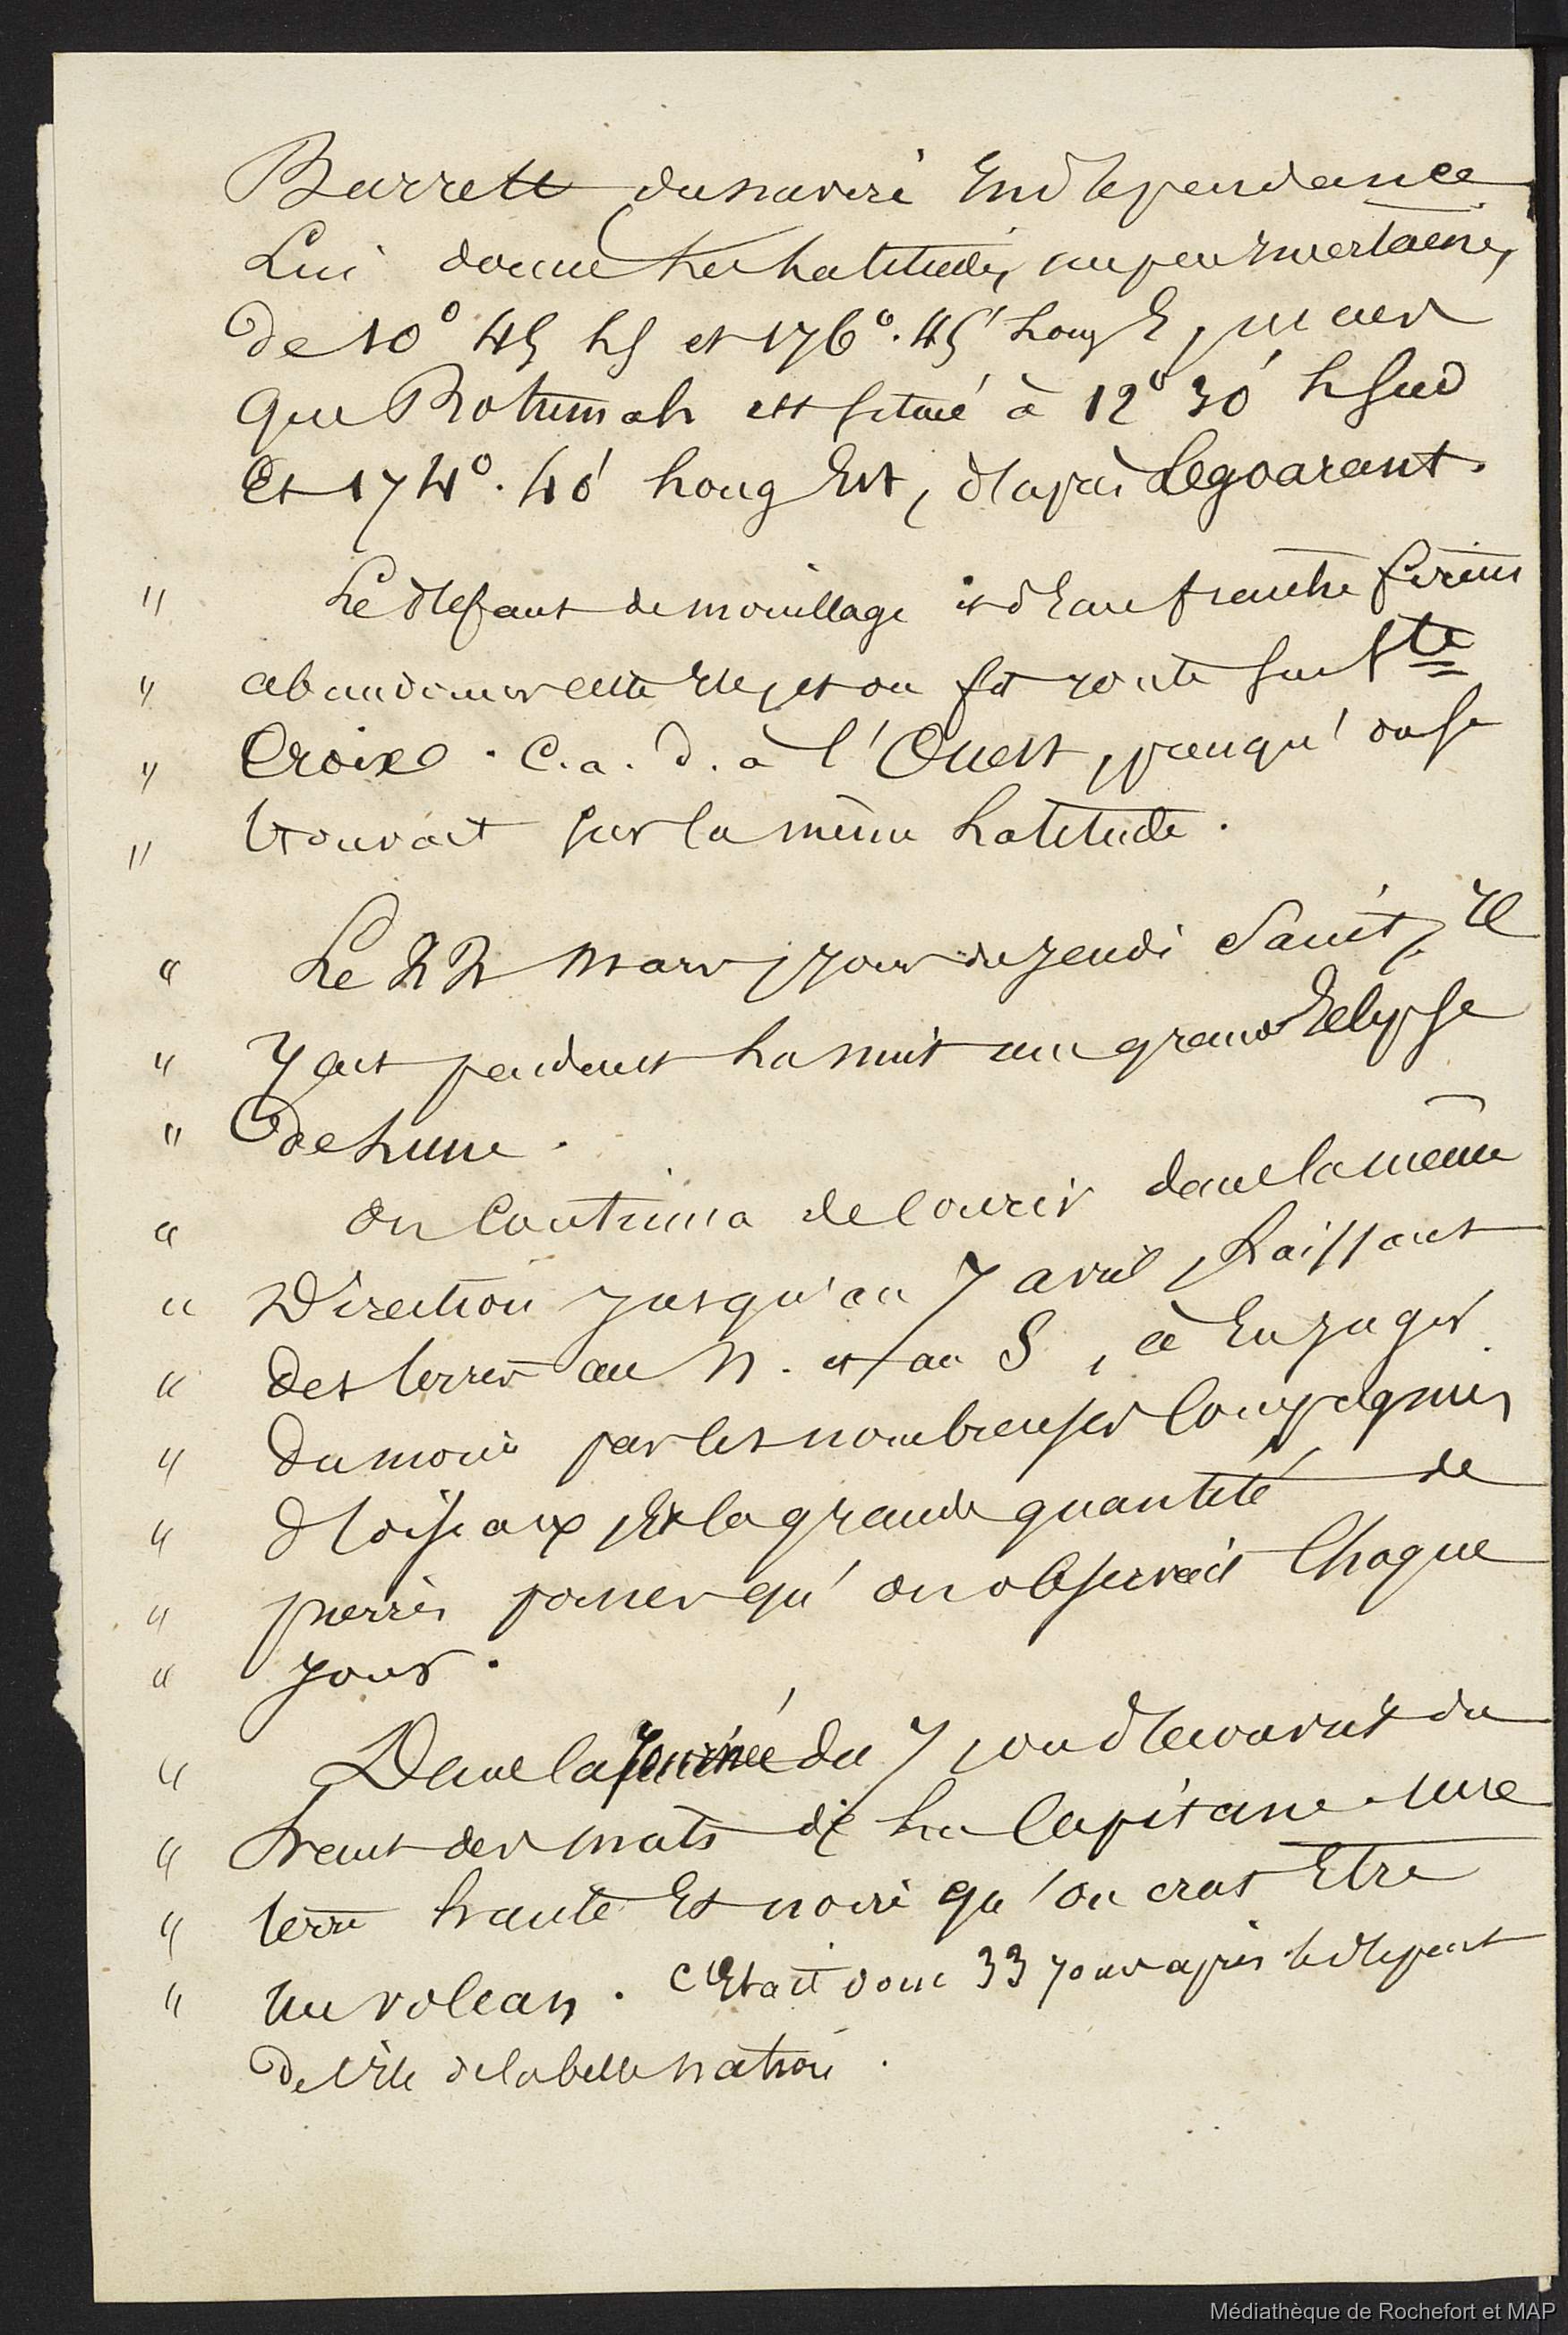 Barrett du navire Independance
Lui donne les Latitudes, un peu incertaines,
De 10° 45 LS et 176°. 45' Long E,
Que Rotumah est situé à 12° 30' L Sud
Et 174°. 40' Long Est, d'après Legoarant.
" Le défaut de mouillage et d'Eau franche firent
" abandonner cette Ile, et on fit route sur Ste
" Croix. C.a.d. à l'Ouest, puisqu'on se
" trouvait sur la même Latitude.
" Le 22 Mars, jour du jeudi Saint, il
" y eut pendant la nuit une grande Eclypse
" de Lune.
" On Continua de Courir dans la même
" Direction jusqu'au 7 avril, Laissant
" des terres au N. et au S, à En juger
" du moins par les nombreuses Compagnies
" d'oiseaux, Et la grande quantité de
" pierres ponces qu'on observait Chaque
" jour.
" Dans la journée du 7, on découvrit du
" haut des mats de La Capitane une
" terre haute Et noire qu'on crut Etre
" un volcan. C'Etait donc 33 jours après le départ
De l'Ile de la belle nation.
Médiathèque de Rochefort et MAP